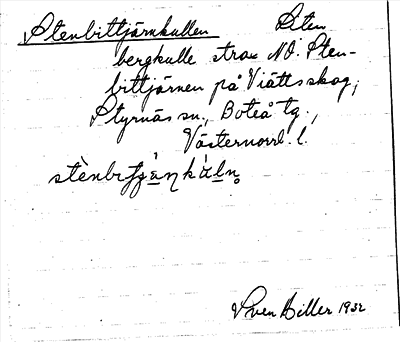 Stenbittjärnkullen Liten
bergkulle strax NO. Sten-
bittjärnen på Viättsskog,
Styrnäs sn., Boteå tg.,
Västernorrl. l.
Sven Hiller 1932